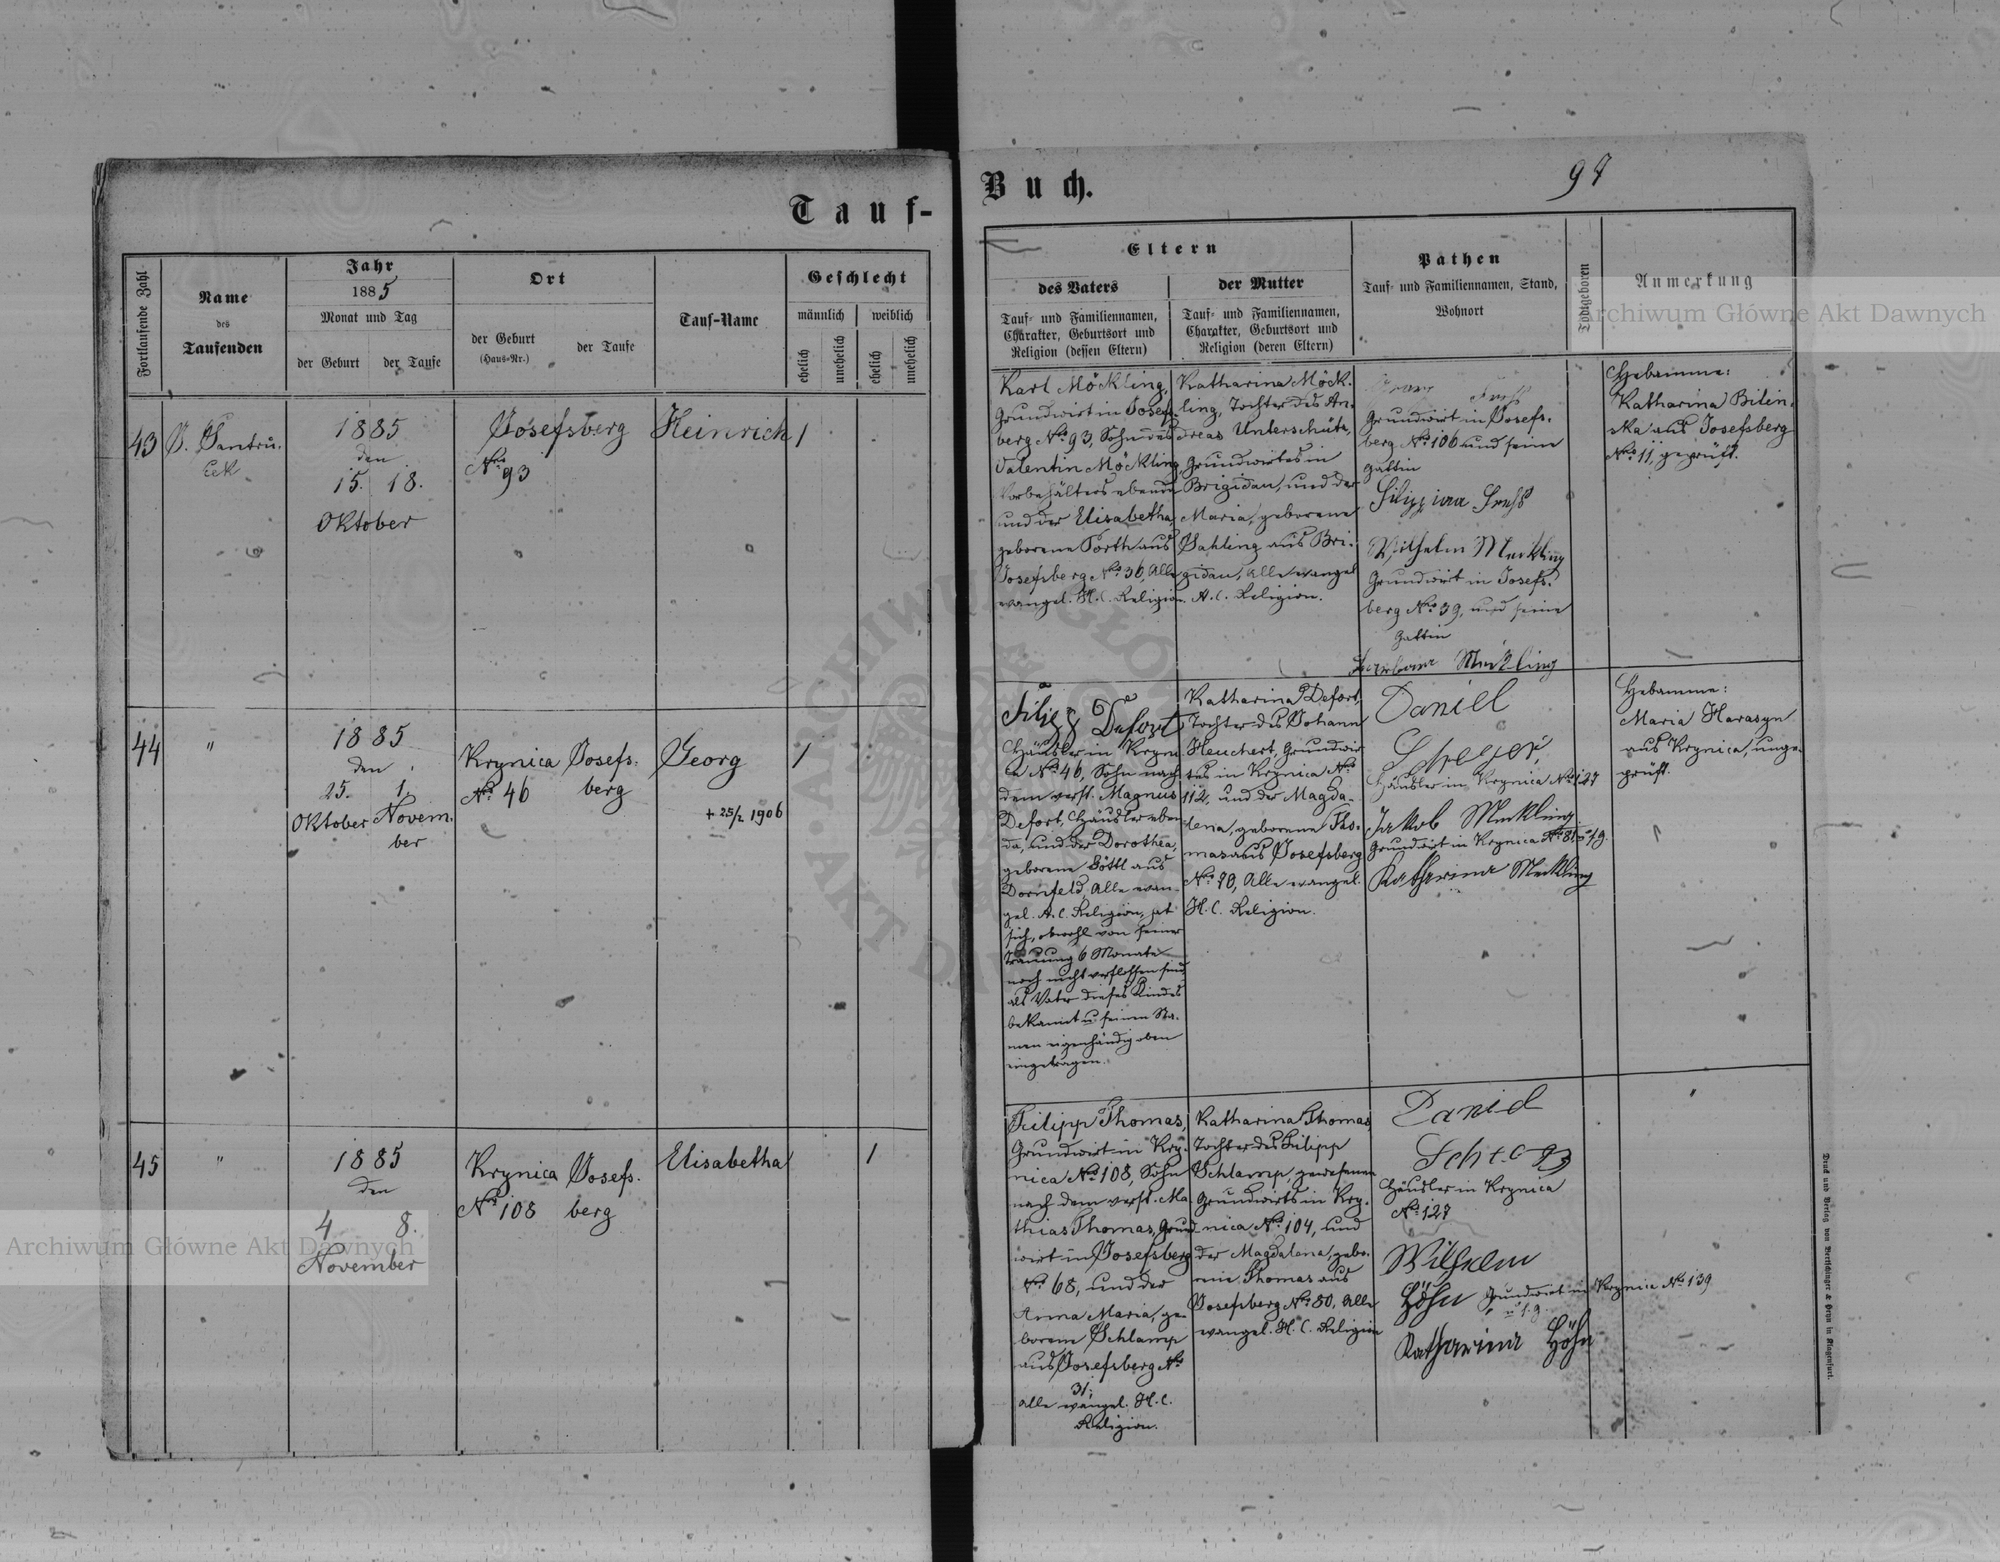 Tauf-
Buch.
Fortlaufende Zahl
Name
des
Taufenden
Jahr
1885
Monat und Tag
der Geburt
der Taufe
Ort
der Geburt
(Haus-Nr.)
der Taufe
Tauf-Name
Geschlecht
männlich
weiblich
ehelich
unehelich
ehelich
unehelich
Eltern
des Vaters
Tauf- und Familiennamen,
Charakter, Geburtsort und
Religion (dessen Eltern)
der Mutter
Tauf- und Familiennamen,
Charakter, Geburtsort und
Religion (deren Eltern)
Pathen
Tauf- und Familiennamen, Stand,
Wohnort
Todtgeboren
Anmerkung
43
1885
den
15. 18.
Oktober
Josefsberg
No 93
Heinrich
1
Karl Möckling,
Grundwirt in Josefs-
berg No 93, Sohn des
Valentin Möckling,
Vorbehälters ebenda
und der Elisabetha
geborene Porth aus
Josefsberg No 36, Alle
evangel. H. C. Religion.
Katharina Möck-
ling, Tochter des An-
dreas Unterschütz,
Grundwirtes in
Brigidau, und der
Maria, geborene
Jahling aus Bri-
gidau, Alle evangel
A. C. Religion.
Grundwirt in Josefs-
berg No 106 und seine
Gattin
Wilhelm Meckling
Grundwirt in Josefs-
berg No 39, und seine
Gattin
Meckling
Hebamme:
Katharina Bilin-
ska aus Josefsberg
No 11, geprüft.
44
"
1885
den
25. 1.
Oktober Novem-
ber
Krynica
No 46
Josefs-
berg
Georg
+ 25/2 1906
1
Filipp Defort
Häusler in Kryni-
ca No 46, Sohn nach
dem verst. Magnus
Defort, Häusler eben
da, und der Dorothea,
geborene Göttl aus
Dornfeld, Alle evan-
gel. A. C. Religion, hat
sich, obwohl von seiner
Trauung 6 Monate
noch nicht verflossen sind,
als Vater dieses Kindes
bekannt u seinen Na-
men eigenhändig oben
eingetragen.
Katharina Defort,
Tochter des Johann
Heuchert, Grundwir-
tes in Krynica No
112, und der Magda-
lena, geborene Tho-
mas aus Josefsberg
No 80, Alle evangel.
H. C. Religion.
Daniel
Häusler in Krynica No 127
Jakob Meckling
Grundwirt in Krynica No 81
Katharina Meckling
Hebamme:
Maria Harasyn
aus Krynica, unge-
prüft.
45
"
1885
den
4 8.
November
Krynica
No 108
Josefs-
berg
Elisabetha
1
Filipp Thomas,
Grundwirt in Kry-
nica No 108, Sohn
nach dem verst. Ma-
thias Thomas, Grund
wirt in Josefsberg
No 68, und der
Anna Maria, ge-
borene Schlamp
aus Josefsberg No
31;
alle evangel. H. C.
Religion.
Katharina Thomas,
Tochter des Filipp
Schlamp, gewesenen
Grundwirts in Kry-
nica No 104, und
der Magdalena, gebo-
rene Thomas aus
Josefsberg No 80, Alle
evangel. H. C. Religion
Daniel
Häusler in Krynica
No 127
Wilhelm
Höhn Grundwirt in Krynica No 139
Katharina Höhn
Druck und Verlag von Bertschinger & Heyn in Klagenfurt.
Archiwum Główne Akt Dawnych
Archiwum Główne Akt Dawnych